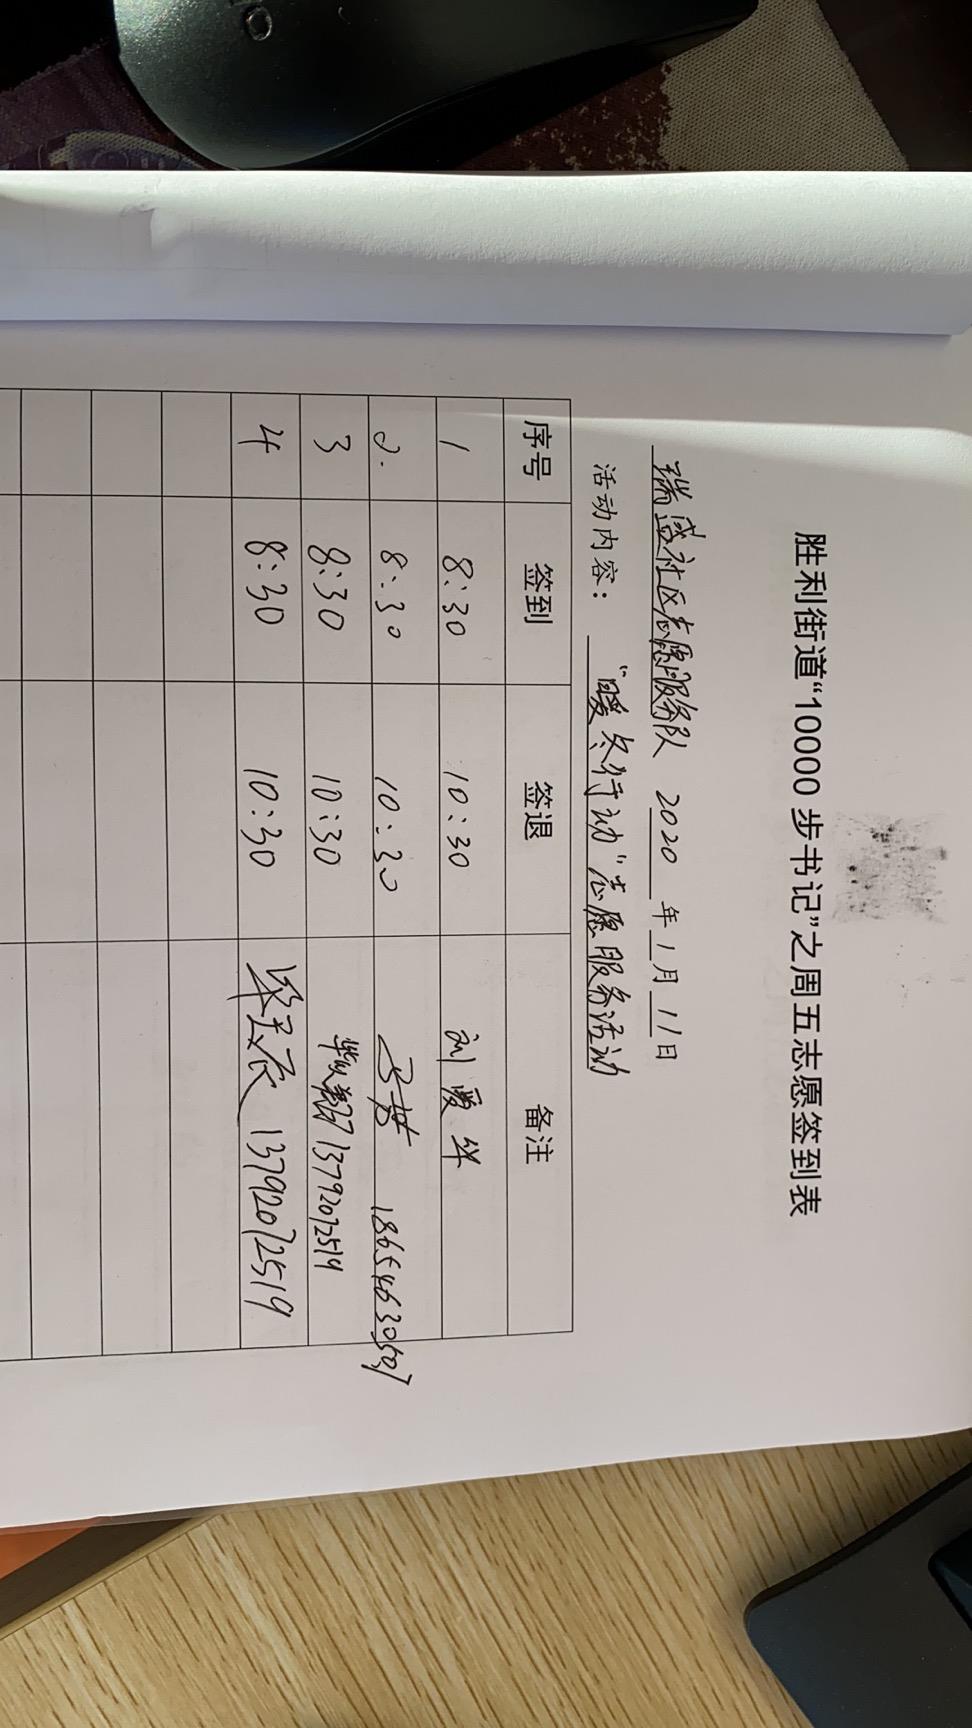 胜利街道“10000 步书记”之周五志愿签到表
瑞盛社区志愿服务队 2020 年 1 月 11 日
活动内容： “暖冬行动”志愿服务活动
序号 签到 签退 备注
1 8:30 10:30 刘爱华
2. 8:30 10:30 18654630507
3 8:30 10:30 13792072519
4 8:30 10:30 13792072519